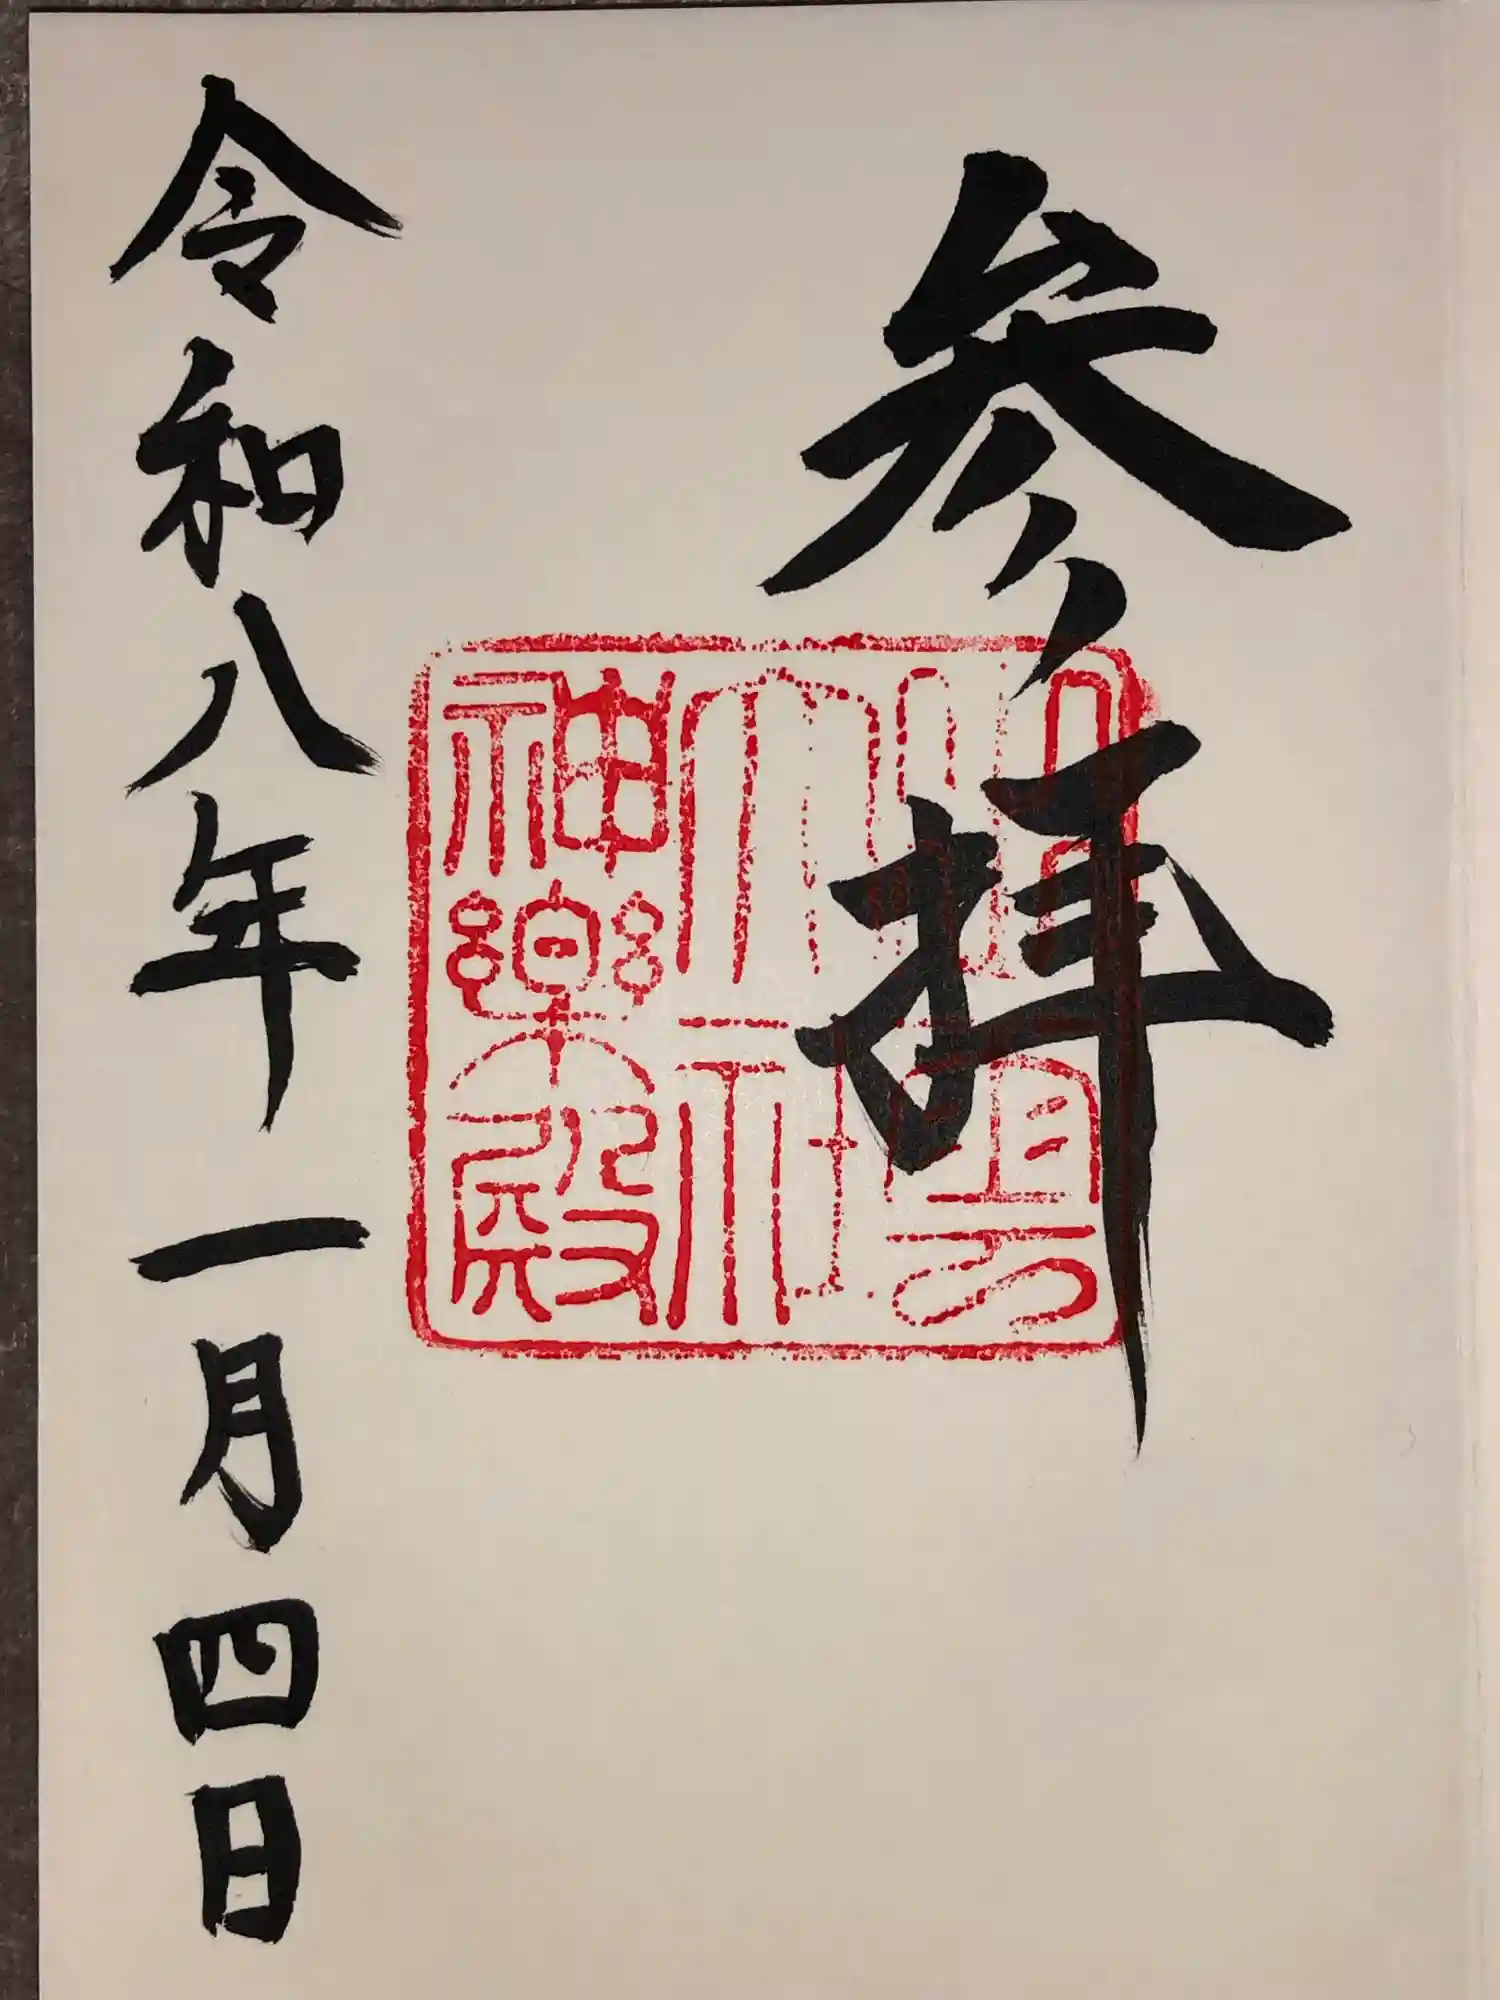 参拝
出雲
大社
神楽殿
令和八年一月四日